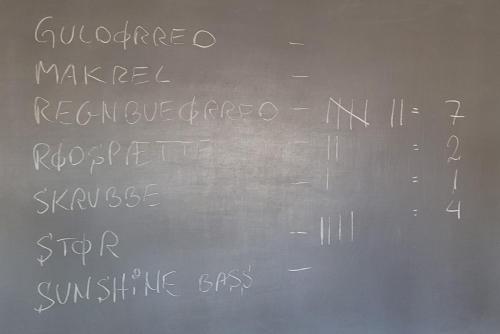 GULDØRRED –
MAKREL –
REGNBUEØRRED – |||| || = 7
RØDSPÆTTE – || = 2
SKRUBBE – | = 1
STØR – |||| = 4
SUNSHINE BASS –